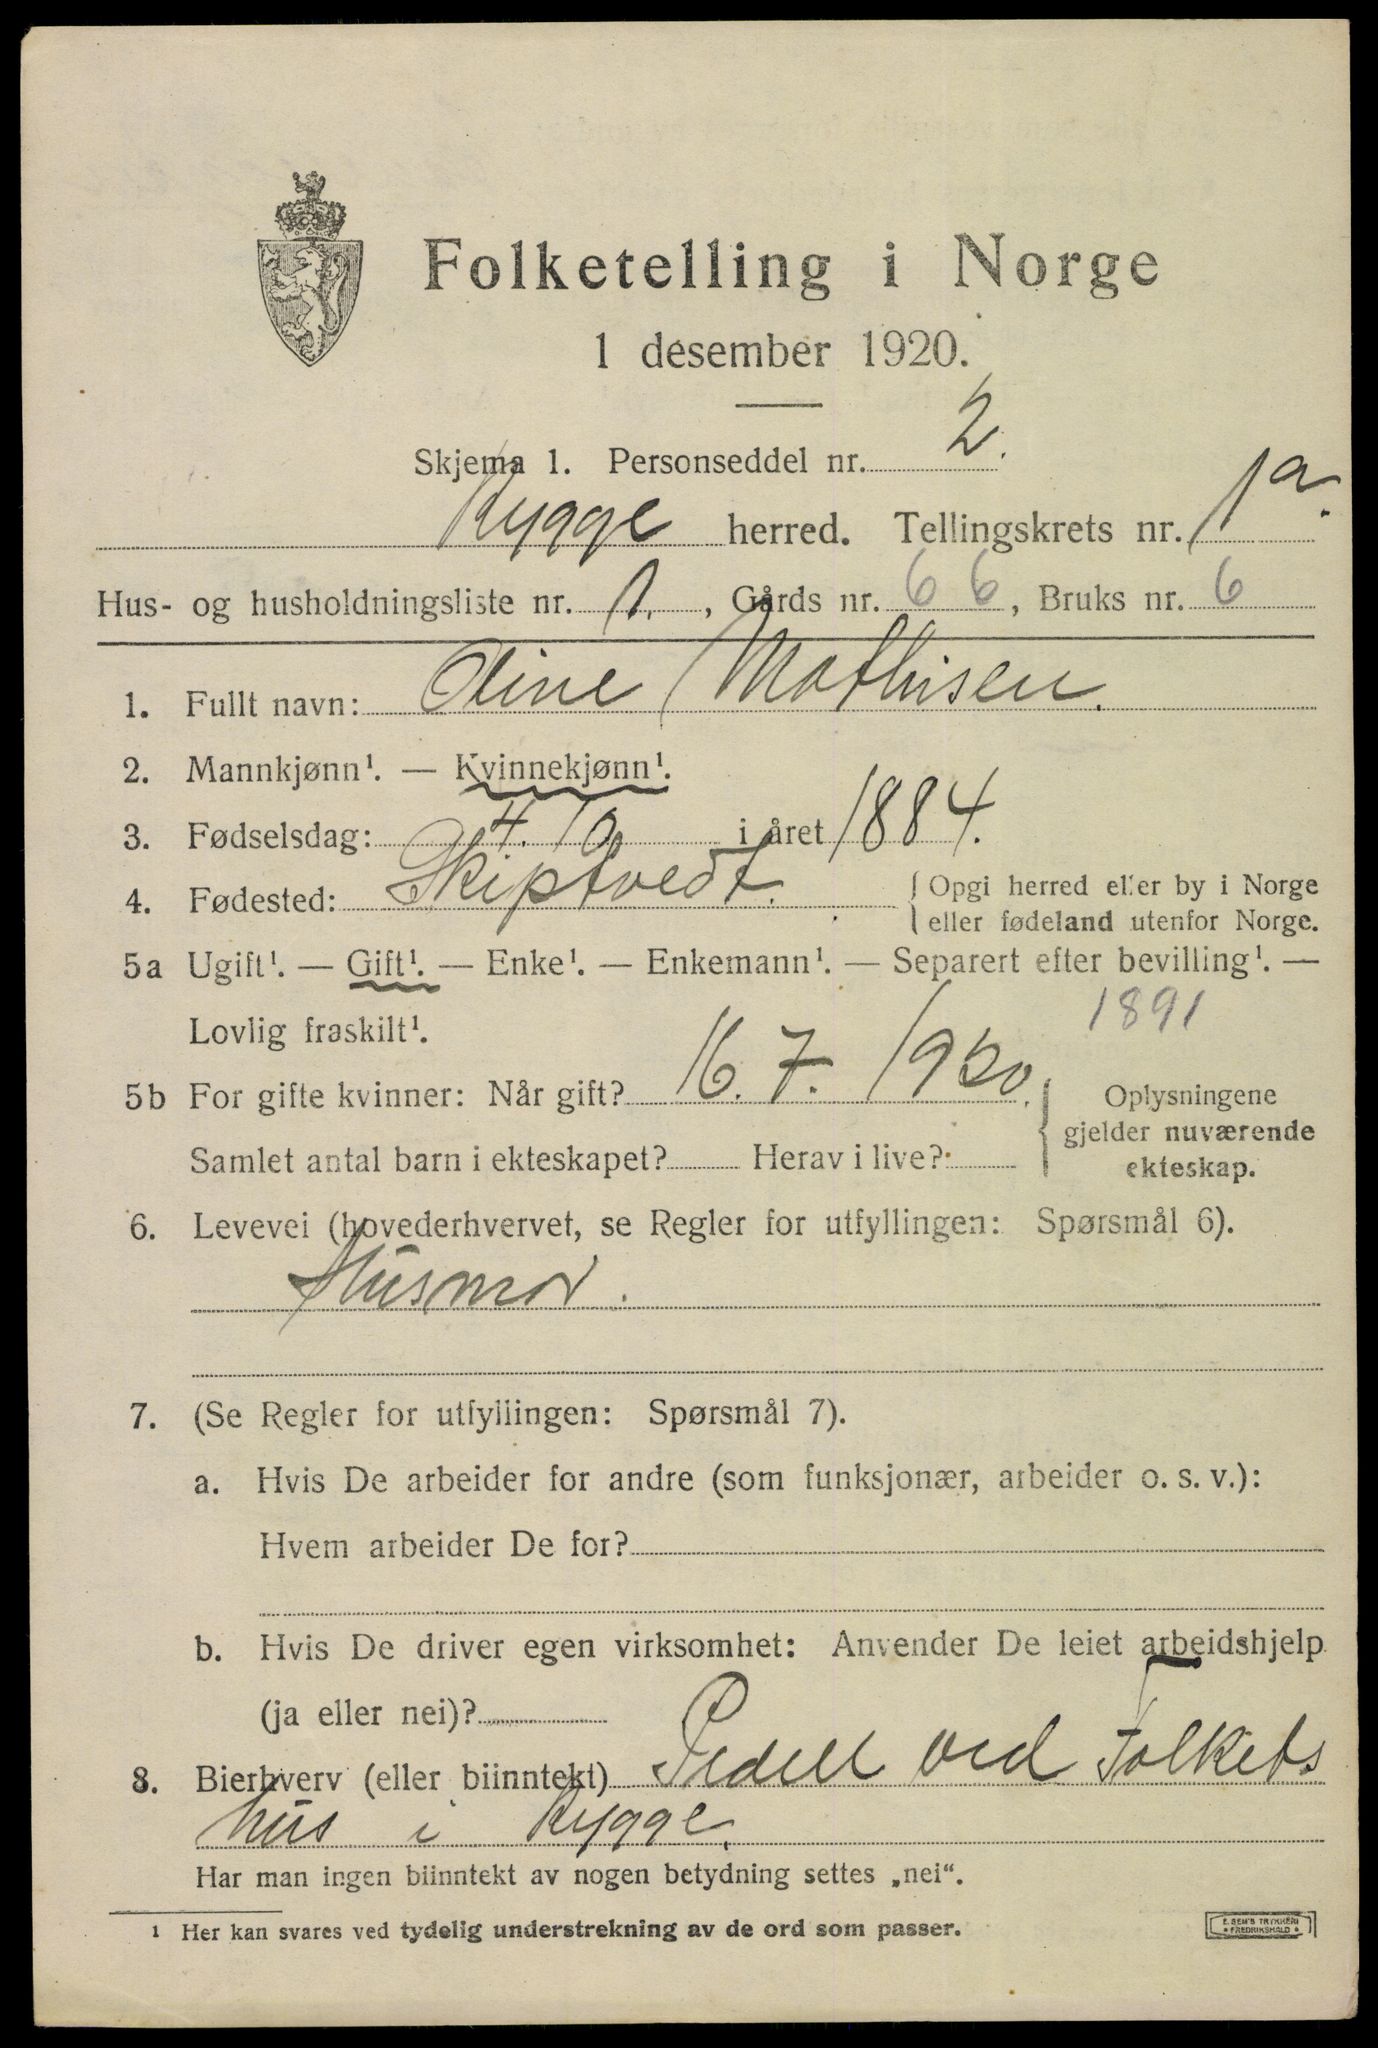 Folketelling i Norge
1 desember 1920.
Skjema 1. Personseddel nr. 2.
Rygge herred. Tellingskrets nr. 1a.
Hus- og husholdningsliste nr. 1., Gårds nr. 66, Bruks nr. 6
1. Fullt navn: Oline Mathisen.
2. Mannkjønn¹. — Kvinnekjønn¹.
3. Fødselsdag: 4. 10 i året 1884.
4. Fødested: Skiptvedt. { Opgi herred eller by i Norge
eller fødeland utenfor Norge.
5a Ugift¹. — Gift¹. — Enke¹. — Enkemann¹. — Separert efter bevilling¹. —
Lovlig fraskilt¹. 1891
5b For gifte kvinner: Når gift? 16. 7. 1920. Oplysningene
gjelder nuværende
Samlet antal barn i ekteskapet? Herav i live? ekteskap.
6. Levevei (hovederhvervet, se Regler for utfyllingen: Spørsmål 6).
Husmor.
7. (Se Regler for utfyllingen: Spørsmål 7).
a. Hvis De arbeider for andre (som funksjonær, arbeider o. s. v.):
Hvem arbeider De for?
b. Hvis De driver egen virksomhet: Anvender De leiet arbeidshjelp
(ja eller nei)?
8. Bierhverv (eller biinntekt) Pedell ved Folkets
hus i Rygge.
Har man ingen biinntekt av nogen betydning settes „nei“.
1 Her kan svares ved tydelig understrekning av de ord som passer.
E. SEM'S TRYKKERI
FREDRIKSHALD